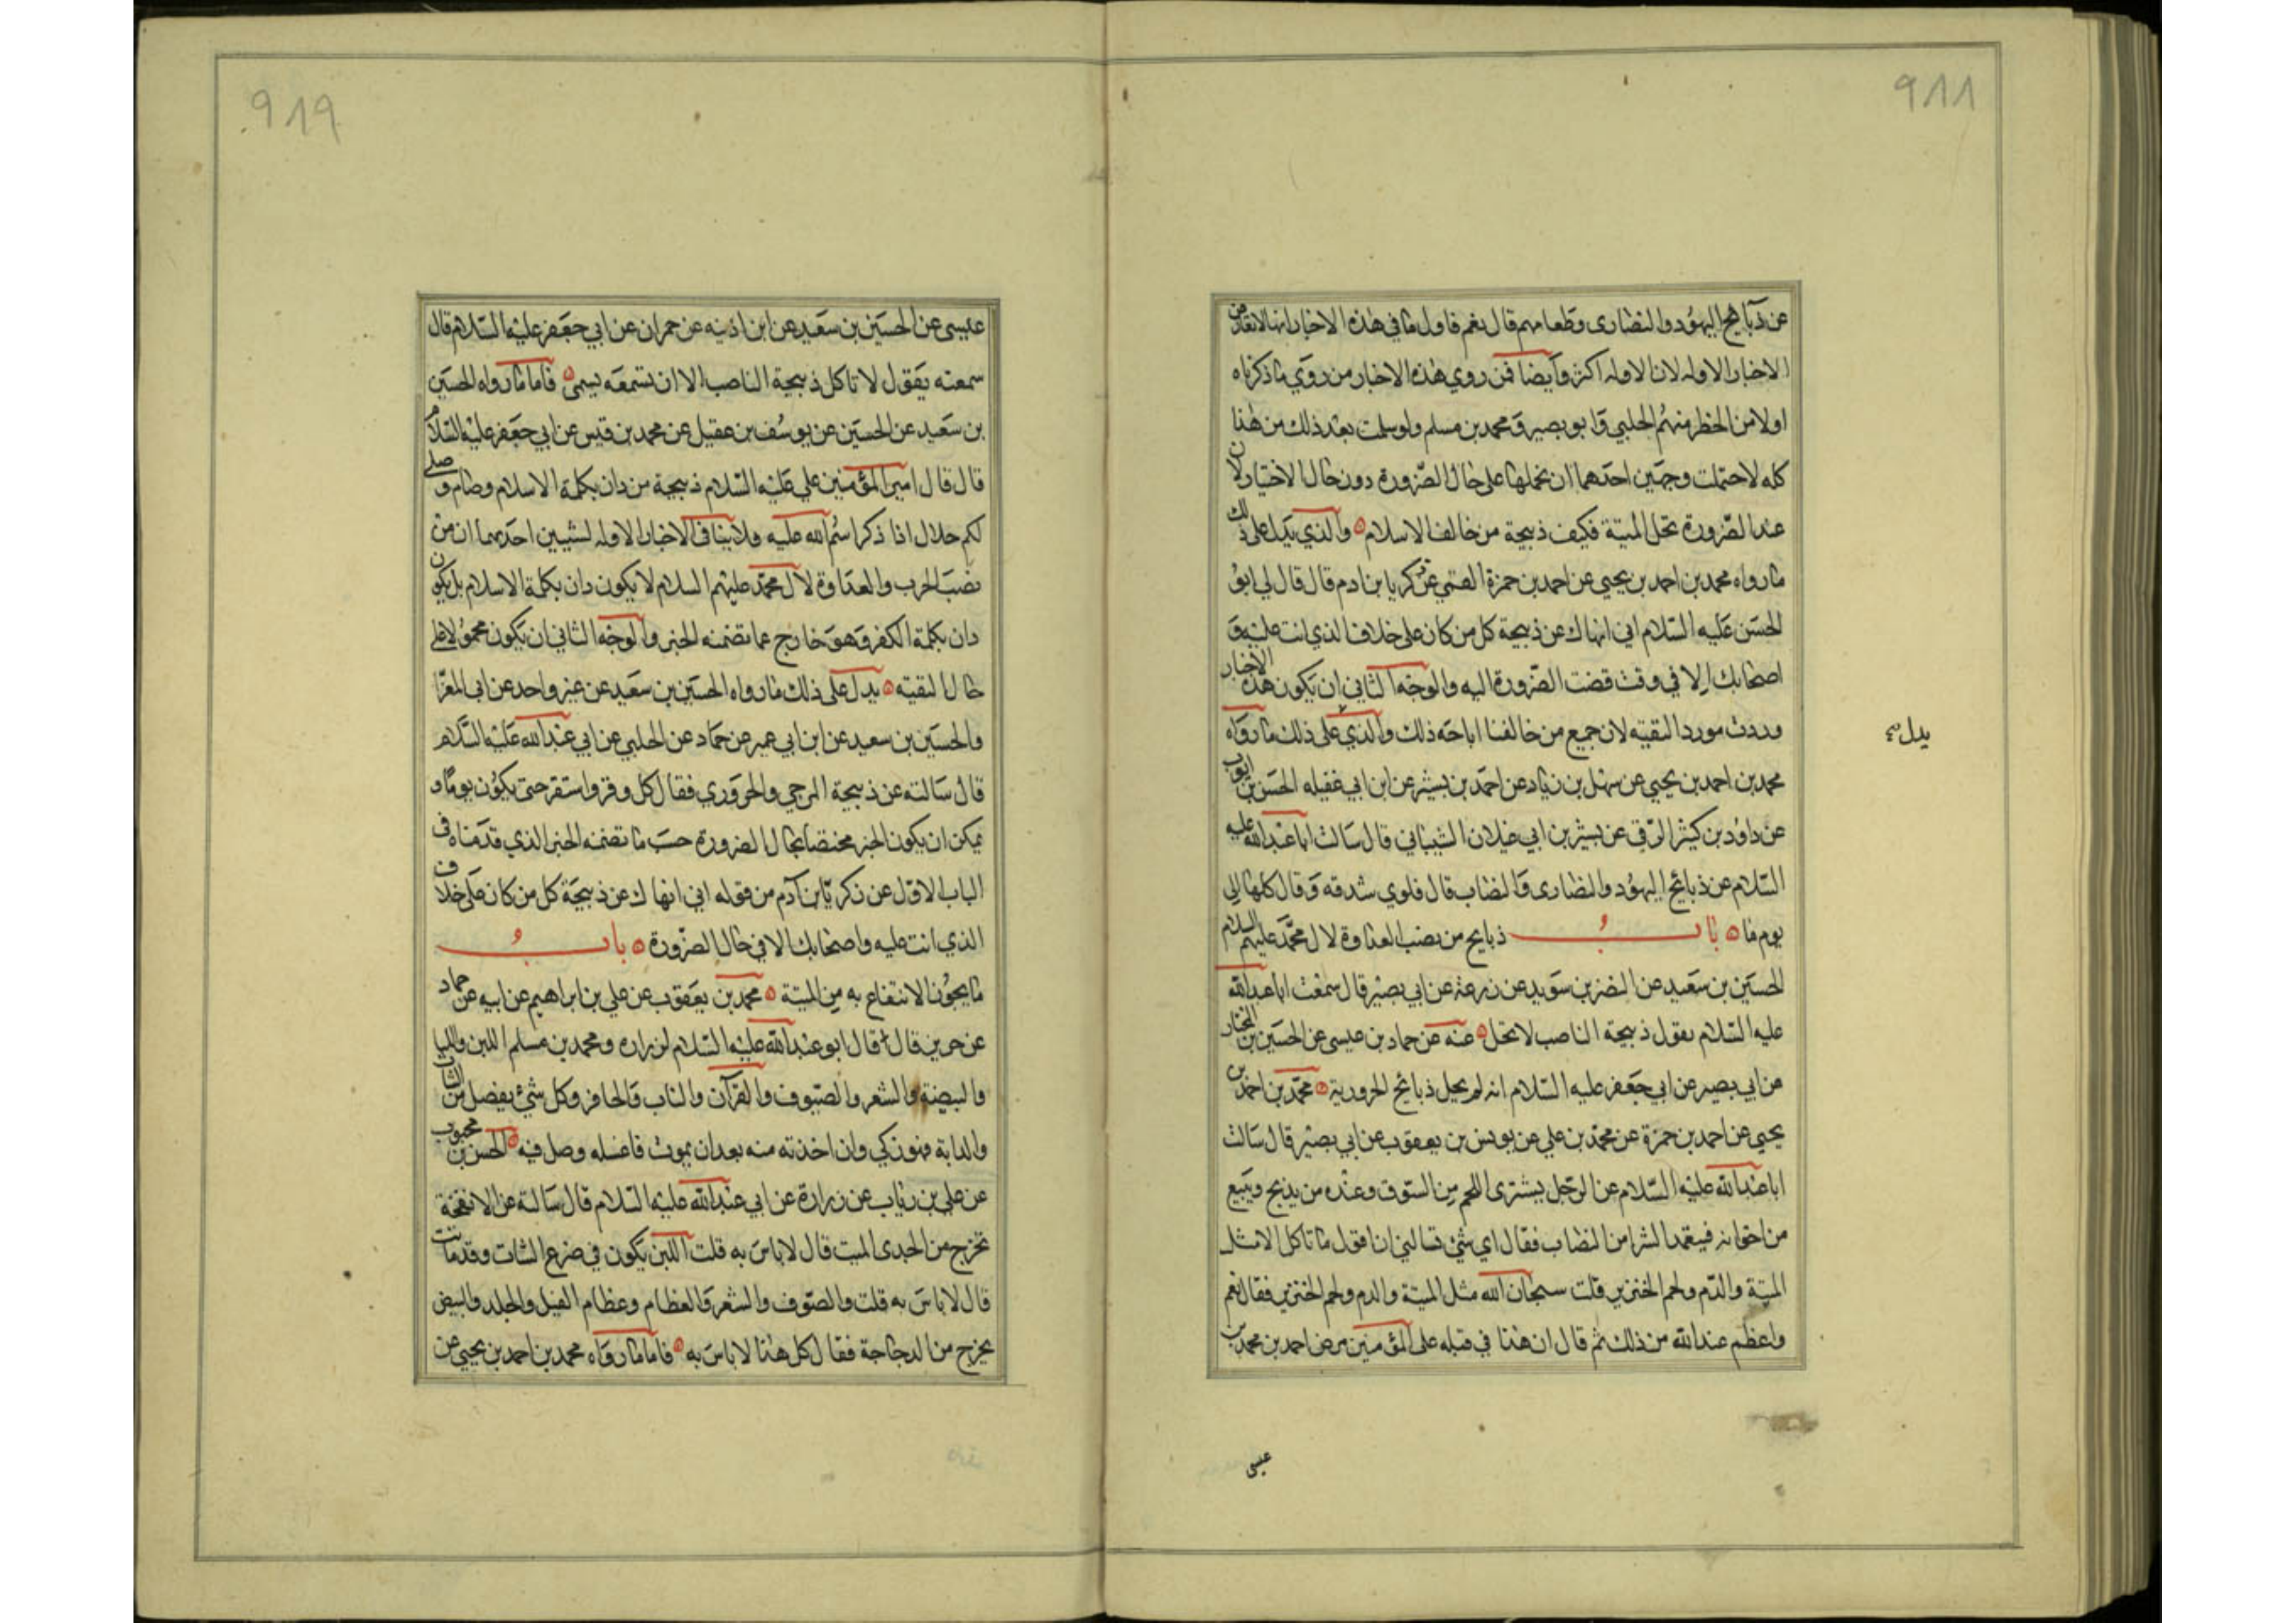 ٩٨٨
عن ذبايح اليهود والنصارى وطعامهم قال نعم فاول ما في هذه الاخبار انها لا تعارض
الاخبار الاوله لان الاوله اكثر وأيضا فمن روي هذه الاخبار من روي ما ذكرناه
اولا من الحظر منهم الحلبي وابو بصير ومحمد بن مسلم ولو سلمت بعد ذلك من هذا
كله لاحتملت وجهين احدهما ان نحملها على حال الضرورة دون حال الاختيار لان
عند الضرورة تحل الميتة فكيف ذبيحة من خالف الاسلام والذي يدل على ذلك
ما رواه محمد بن احمد بن يحيى عن احمد بن حمزة القمي عن زكريا بن ادم قال قال لي ابو
الحسن عليه السلام اني انهاك عن ذبيحة كل من كان على خلاف الذي انت عليه و
اصحابك الا في وقت قضت الضرورة اليه والوجه الثاني ان يكون هذه الاخبار
وردت مورد التقيه لان جميع من خالفنا اباحه ذلك والذي على ذلك ما رواه
يدل
محمد بن احمد بن يحيي عن سهل بن زياد عن احمد بن بشير عن ابن ابي غفيله الحسن بن ايوب
عن داود بن كثير الرقي عن بشير بن ابي غيلان الشيباني قال سالت ابا عبدالله عليه
السلام عن ذبائح اليهود والنصارى والنصاب قال فلوي شدقه وقال كلها الى
يوم ما ه باب ذبايح من نصب العداوة لال محمد عليهم السلام
الحسين بن سعيد عن النضر بن سويد عن زرعة عن ابي بصير قال سمعت ابا عبدالله
عليه السلام يقول ذبيحة الناصب لا تحل ه عنه عن حماد بن عيسى عن الحسين بن المختار
عن ابي بصير عن ابي جعفر عليه السلام انه لم يحل ذبائح الحرورية ه محمد بن احمد بن
يحيي عن احمد بن حمزة عن محمد بن علي عن يونس بن يعقوب عن ابي بصير قال سالت
ابا عبدالله عليه السلام عن الرجل يشترى اللحم من السوق وعنده من يذبح ويبيع
من اخوانه فيتعمد الشرا من النصاب فقال اي شئ تسالني ان اقول ما تاكل الا مثل
الميتة والدم ولحم الخنزير قلت سبحان الله مثل الميتة والدم ولحم الخنزير فقال نعم
واعظم عند الله من ذلك ثم قال ان هذا في قلبه على المؤمنين مرض احمد بن محمد بن
عيسى
٩٨٩
عيسى عن الحسين بن سعيد عن ابن اذينه عن حمران عن ابي جعفر عليه السلام قال
سمعته يقول لا تاكل ذبيحة الناصب الا ان تسمعه يسمى ه فاما ما رواه الحسين
بن سعيد عن الحسين عن يوسف بن عقيل عن محمد بن قيس عن ابي جعفر عليه السلام
قال قال امير المؤمنين علي عليه السلام ذبيحة من دان بكلمة الاسلام وصام وصلى
لكم حلال اذا ذكر اسم الله عليه ولا ينافي الاخبار الاوله لشيين احدهما ان من
نصب الحرب والعداوة لال محمد عليهم السلام لا يكون دان بكلمة الاسلام بل يكون
دان بكلمة الكفر وهو خارج عما تضمنه الخبر والوجه الثاني ان يكون محمولا على
حال التقيه ه يدل على ذلك ما رواه الحسين بن سعيد عن غير واحد عن ابى المغرا
والحسين بن سعيد عن ابن ابي عمير عن حماد عن الحلبي عن ابي عبدالله عليه السلام
قال سالته عن ذبيحة المرجي والحروري فقال كل وقر واستقر حتى يكون يوما و
يمكن ان يكون الخبر مختصا بحال الضرورة حسب ما تضمنه الخبر الذي قدمناه في
الباب الاول عن زكريا بن آدم من قوله اني انهاك عن ذبيحة كل من كان على خلاف
الذي انت عليه واصحابك الا في حال الضرورة ه باب
ما يجوز الانتفاع به من الميتة ه محمد بن يعقوب عن علي بن ابراهيم عن ابيه عن حماد
عن حريز قال قال ابو عبدالله عليه السلام لزراره ومحمد بن مسلم اللبن واللبا
والبيضة والشعر والصوف والقرآن والناب والحافر وكل شئ يفصل من الشات
والدابة فهو ذكي وان اخذته منه بعد ان يموت فاغسله وصل فيه ه الحسن بن محبوب
عن علي بن رئاب عن زرارة عن ابي عبدالله عليه السلام قال سالته عن الانفحة
تخرج من الجدى الميت قال لا باس به قلت اللبن يكون في ضرع الشات وقد ماتت
قال لا باس به قلت والصوف والشعر والعظام وعظام الفيل والجلد والبيض
يخرج من الدجاجة فقال كل هذا لا باس به ه فاما ما رواه محمد بن احمد بن يحيي عن